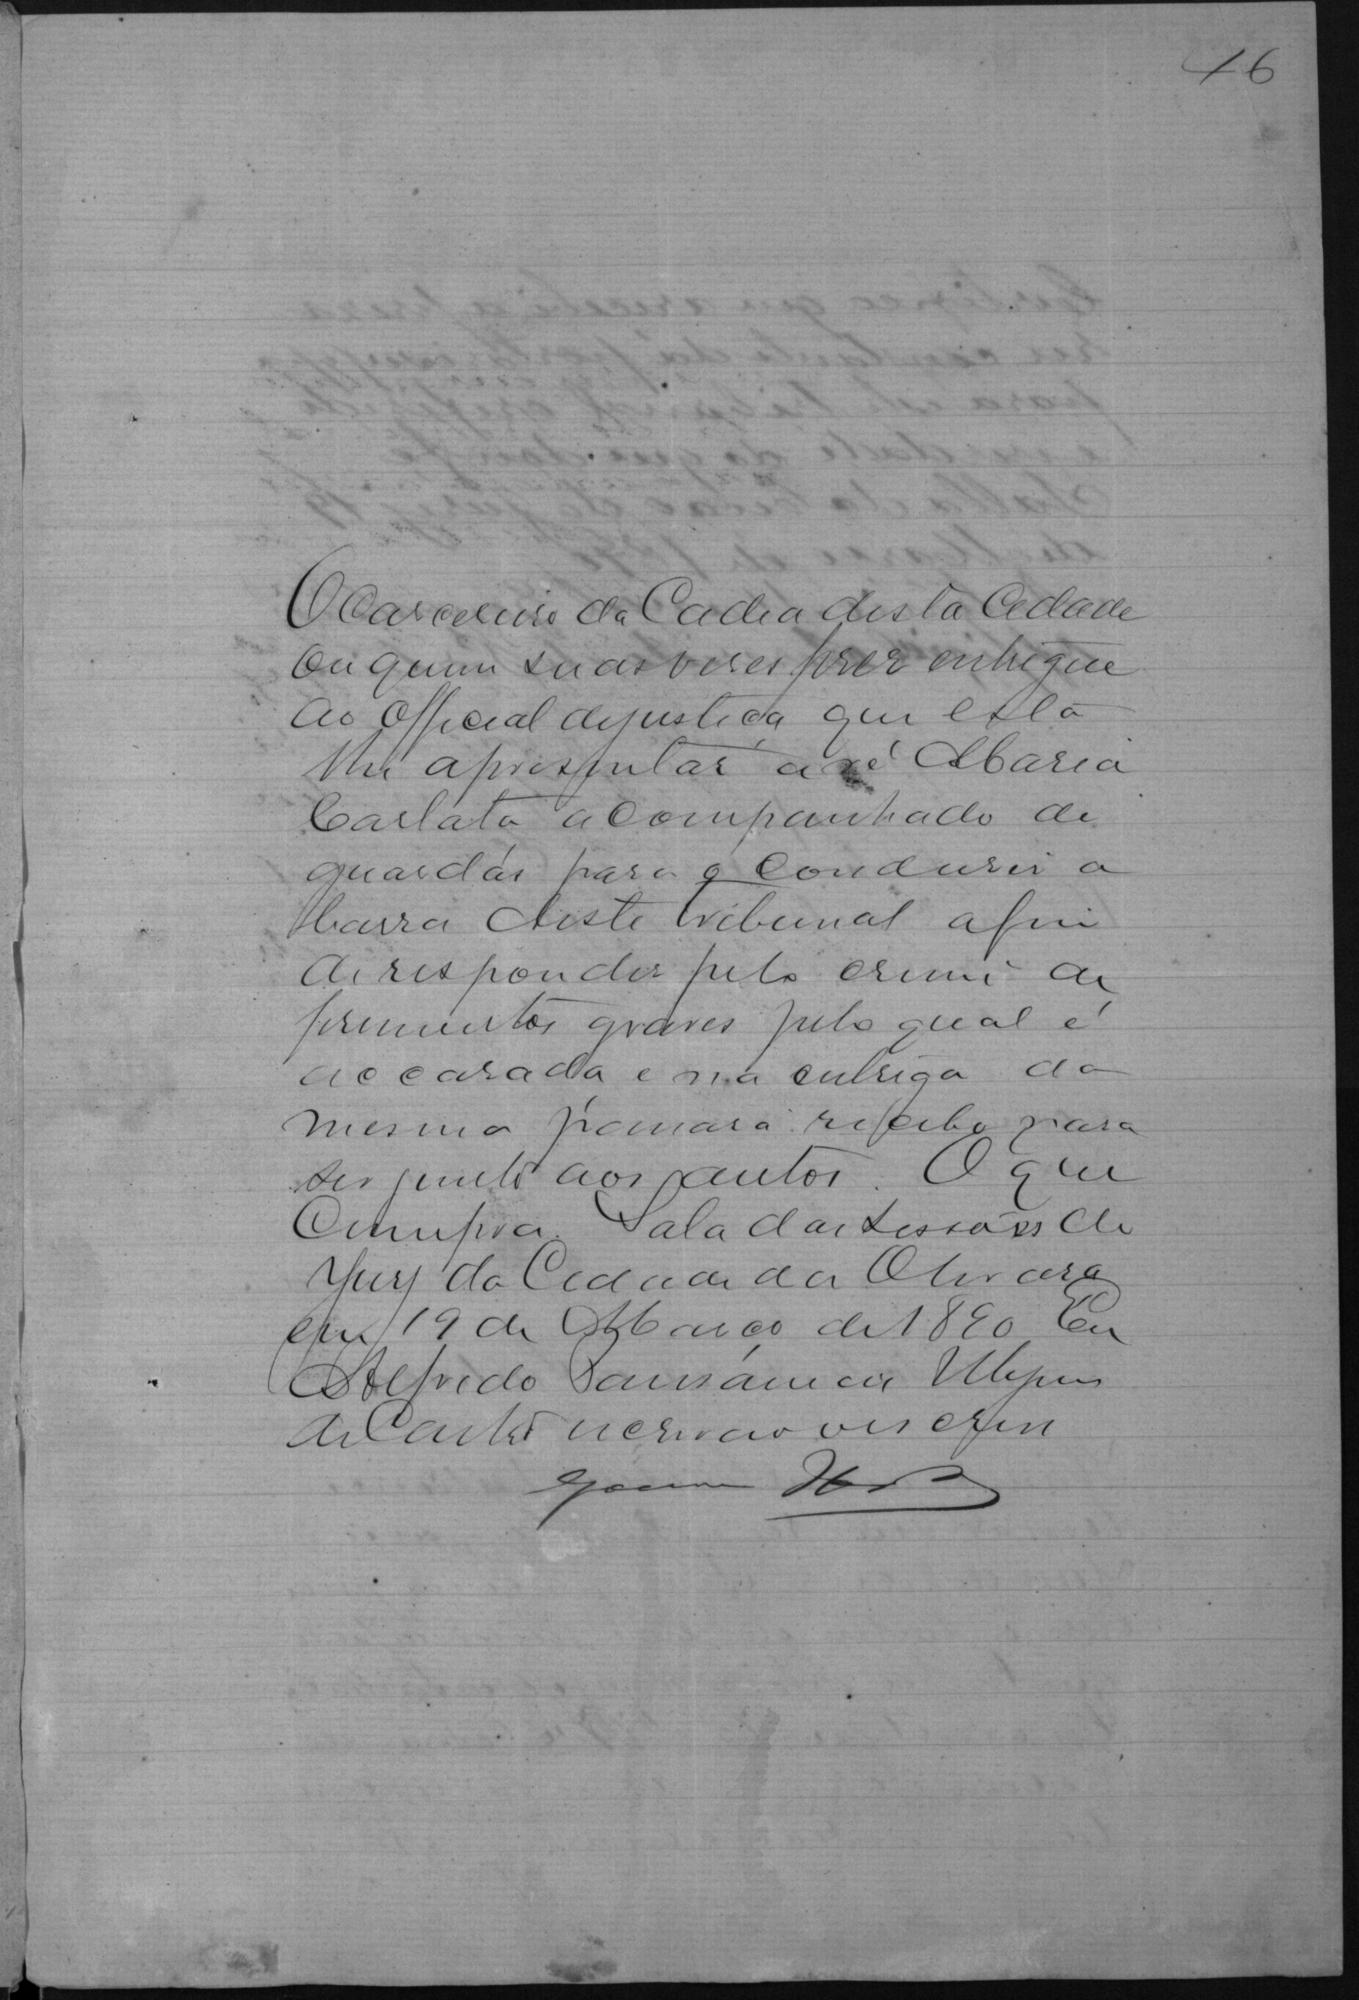 16
O Carcereiro da Cadea desta Cedade
ou quem suas veses fizer entregue
ao Official de justiça que esta
lhe apresentar a ré Maria
acompanhado de
guardas para a condusir a
barra deste tribunal afim
de responder pelo crime de
ferimentos graves pelo qual é
accusada e na entrega da
mesma passará recebo para
ser junto aos autos. O que
Cumpra. Sala das sessões do
Jury da Cedade da
em 19 de Março de 1890 Eu
Alfredo
de Castro escrivão o escrevi